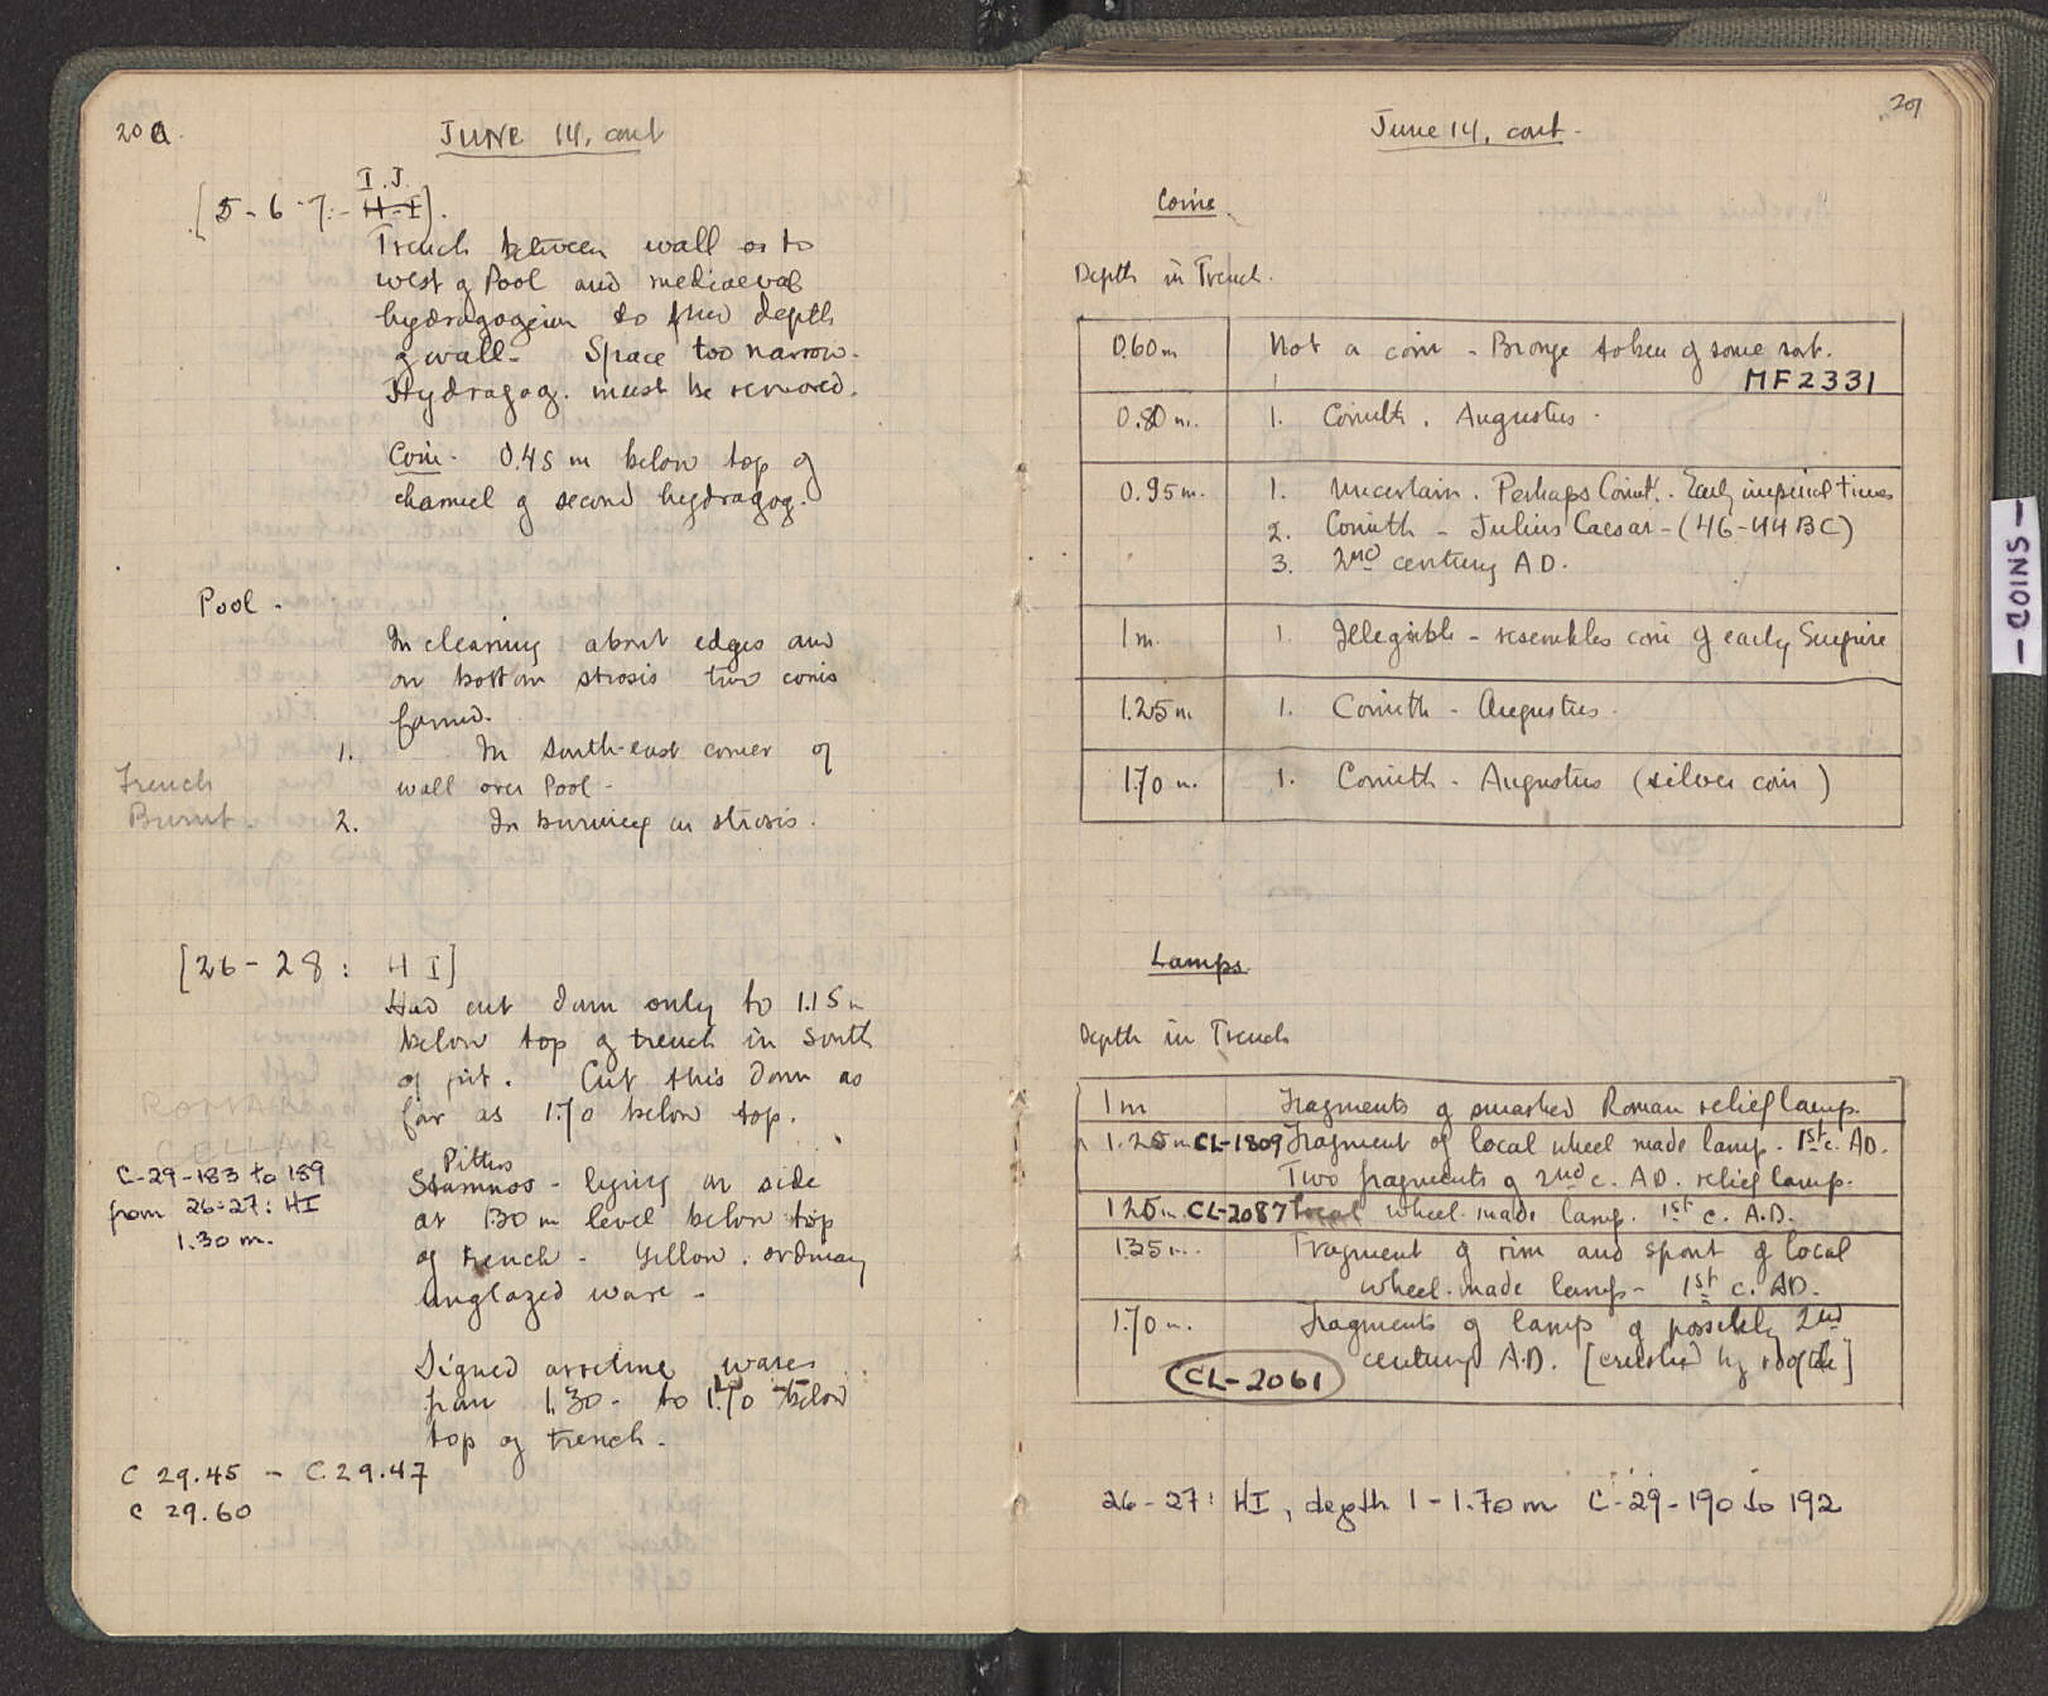 200
JUNE 14, cont
I.J.
[5-6-7:- H-I].
Trench between wall as to
west of Pool and mediaeval
hydragogeion to depth
of wall - Space too narrow.
Hydragog. must be removed.
Coin - 0.45 m below top of
channel of second hydragog.
Pool -
In cleaning about edges and
on bottom strosis two coins
found.
1. In south-east corner of
wall over Pool -
Trench
Burnt.
2. In burning on strosis.
[26-28: H I]
Had cut down only to 1.15 m
below top of trench in south
of pit. Cut this down as
far as 1.70 below top.
ROMAN
CELLAR
Pithos
Stamnos - lying on side
at 1.30 m level below top
of trench - Yellow, ordinary
unglazed ware -
C-29-183 to 189
from 26:27: HI
1.30 m.
Signed arretine wares
from 1.30 - to 1.70 below
top of trench -
C 29.45 - C.29.47
C 29.60
201
June 14, cont -
Coins
Depth in Trench.
0.60 m Not a coin - Bronze token of some sort.
MF2331
0.80 m. 1. Corinth. Augustus.
0.95 m. 1. Uncertain. Perhaps Corinth. Early imperial times
2. Corinth - Julius Caesar - (46-44 BC)
3. 2nd century AD.
1 m. 1. Illegible - resembles coin of early Empire
1.25 m 1. Corinth - Augustus.
1.70 m. 1. Corinth - Augustus (silver coin)
Lamps
Depth in Trench
1 m Fragments of smashed Roman relief lamp.
1.25 m CL-1809 Fragment of local wheel made lamp. 1st c. AD.
Two fragments of 2nd c. AD. relief lamp.
1 25 m. CL-2087 Local wheel-made lamp. 1st c. A.D.
1.35 m. Fragment of rim and spout of local
wheel-made lamp - 1st c. AD.
1.70 m. Fragments of lamp of possibly 2nd
century A.D. [crushed by rooftile]
CL-2061
26-27: HI, depth 1-1.70 m C-29-190 to 192
- COINS -